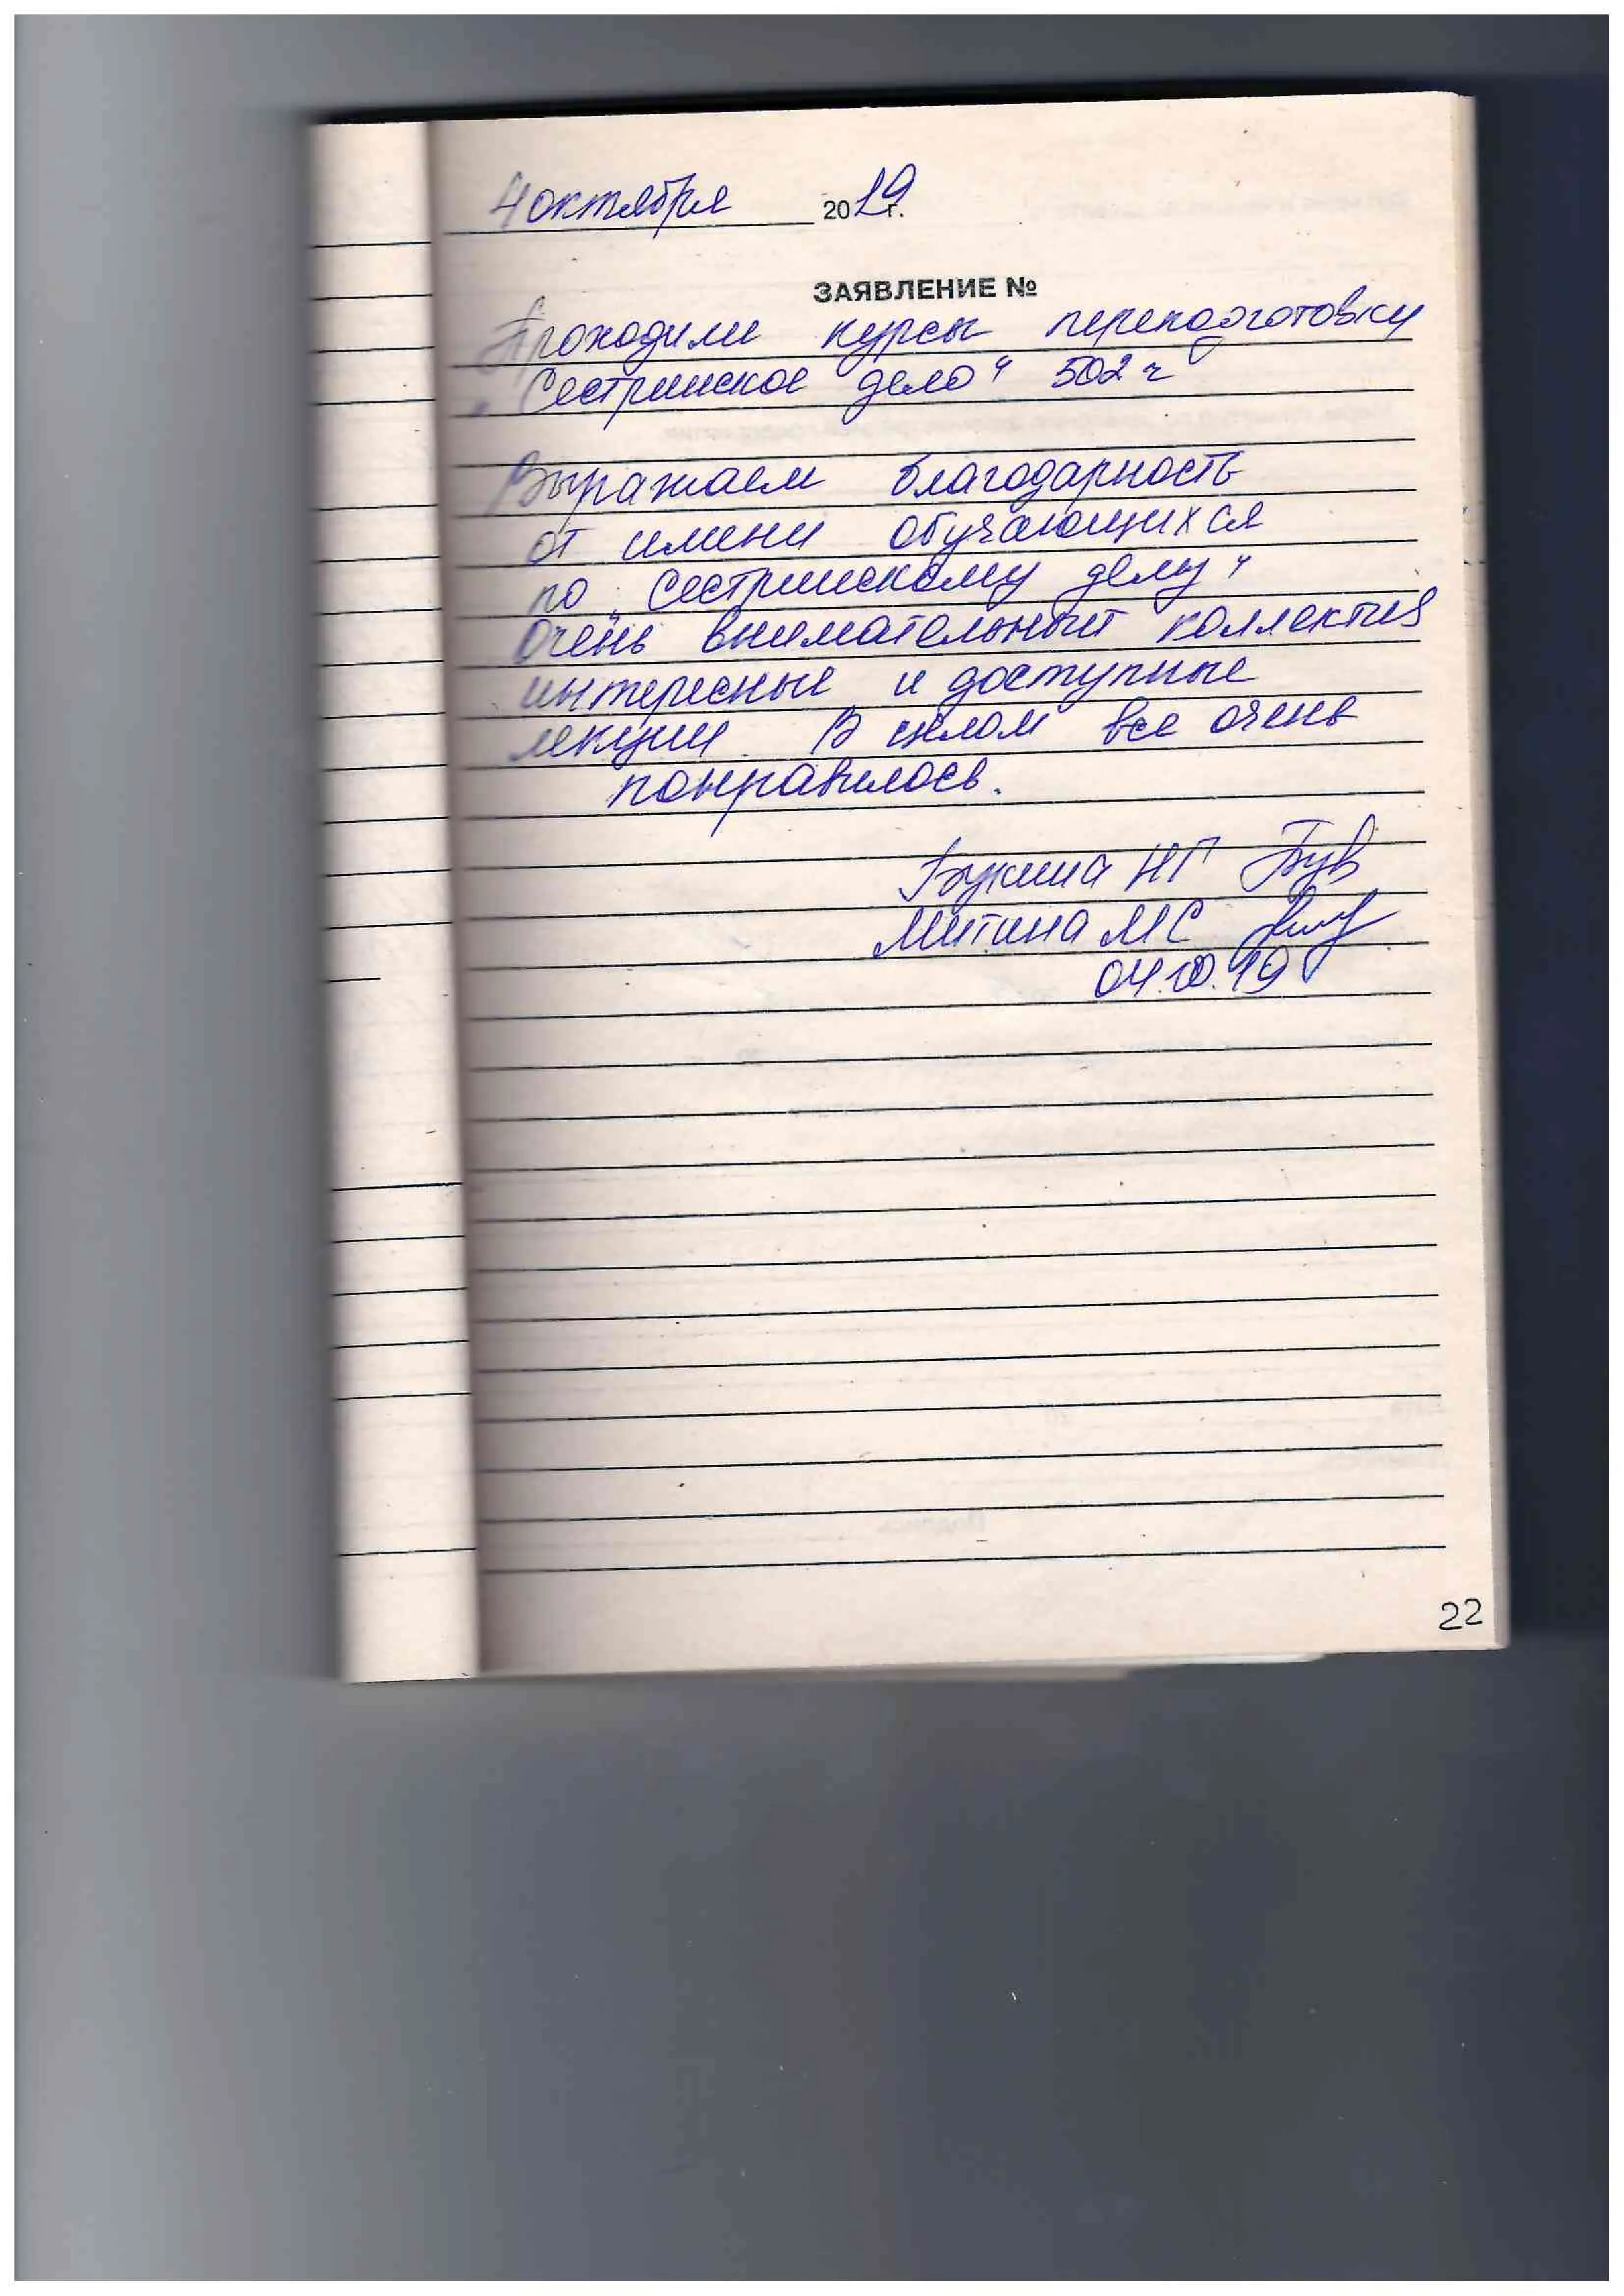 4 октября 2019 г.
ЗАЯВЛЕНИЕ №
Проходили курсы переподготовку
„Сестринское дело“ 502 ч
Выражаем благодарность
от имени обучающихся
по „Сестринскому делу“
очень внимательный коллектив
интересные и доступные
лекции. В целом все очень
понравилось.
НГ
Митина МС
04.10.19
22